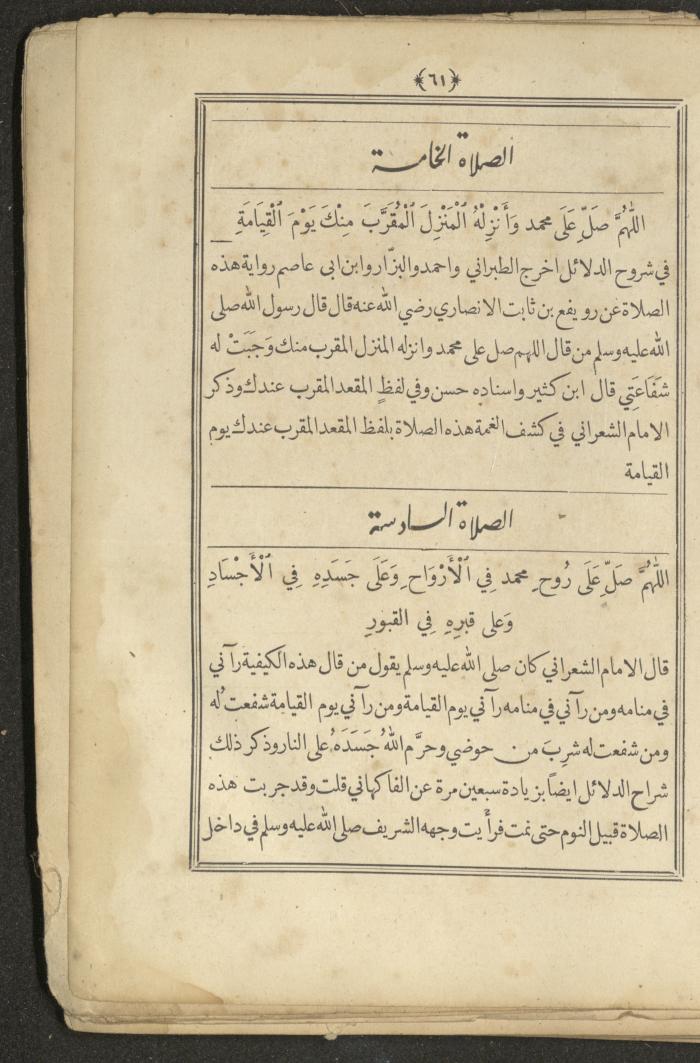 ﴿٦١﴾
الصلاة الخامسة
اللّٰهُمَّ صَلِّ عَلَى محمد وَأَنْزِلْهُ ٱلْمَنْزِلَ ٱلْمُقَرَّبَ مِنْكَ يَوْمَ ٱلْقِيَامَةِ
في شروح الدلائل اخرج الطبراني واحمد والبزّار وابن ابى عاصم رواية هذه
الصلاة عن رويفع بن ثابت الانصاري رضي الله عنه قال قال رسول الله صلى
الله عليه وسلم من قال اللهم صل على محمد وانزله المنزل المقرب منك وَجَبَتْ له
شَفَاعَتِي قال ابن كثير واسناده حسن وفي لفظٍ المقعد المقرب عندك وذكر
الامام الشعراني في كشف الغمة هذه الصلاة بلفظ المقعد المقرب عندك يوم
القيامة
الصلاة السادسة
اللّٰهُمَّ صَلِّ عَلَى رُوحِ محمد فِي ٱلْأَرْوَاحِ وَعَلَى جَسَدِهِ فِي ٱلْأَجْسَادِ
وَعلى قبرِهِ فِي القبورِ
قال الامام الشعراني كان صلى الله عليه وسلم يقول من قال هذه الكيفية رآني
في منامه ومن رآني في منامه رآني يوم القيامة ومن رآني يوم القيامة شفعتُ له
ومن شفعت له شرِبَ من حوضي وحرَّم اللهُ جَسَدَهُ على النار وذكر ذلك
شراح الدلائل ايضاً بزيادة سبعين مرة عن الفاكهاني قلت وقد جربت هذه
الصلاة قبيل النوم حتى نمت فرأيت وجهه الشريف صلى الله عليه وسلم في داخل